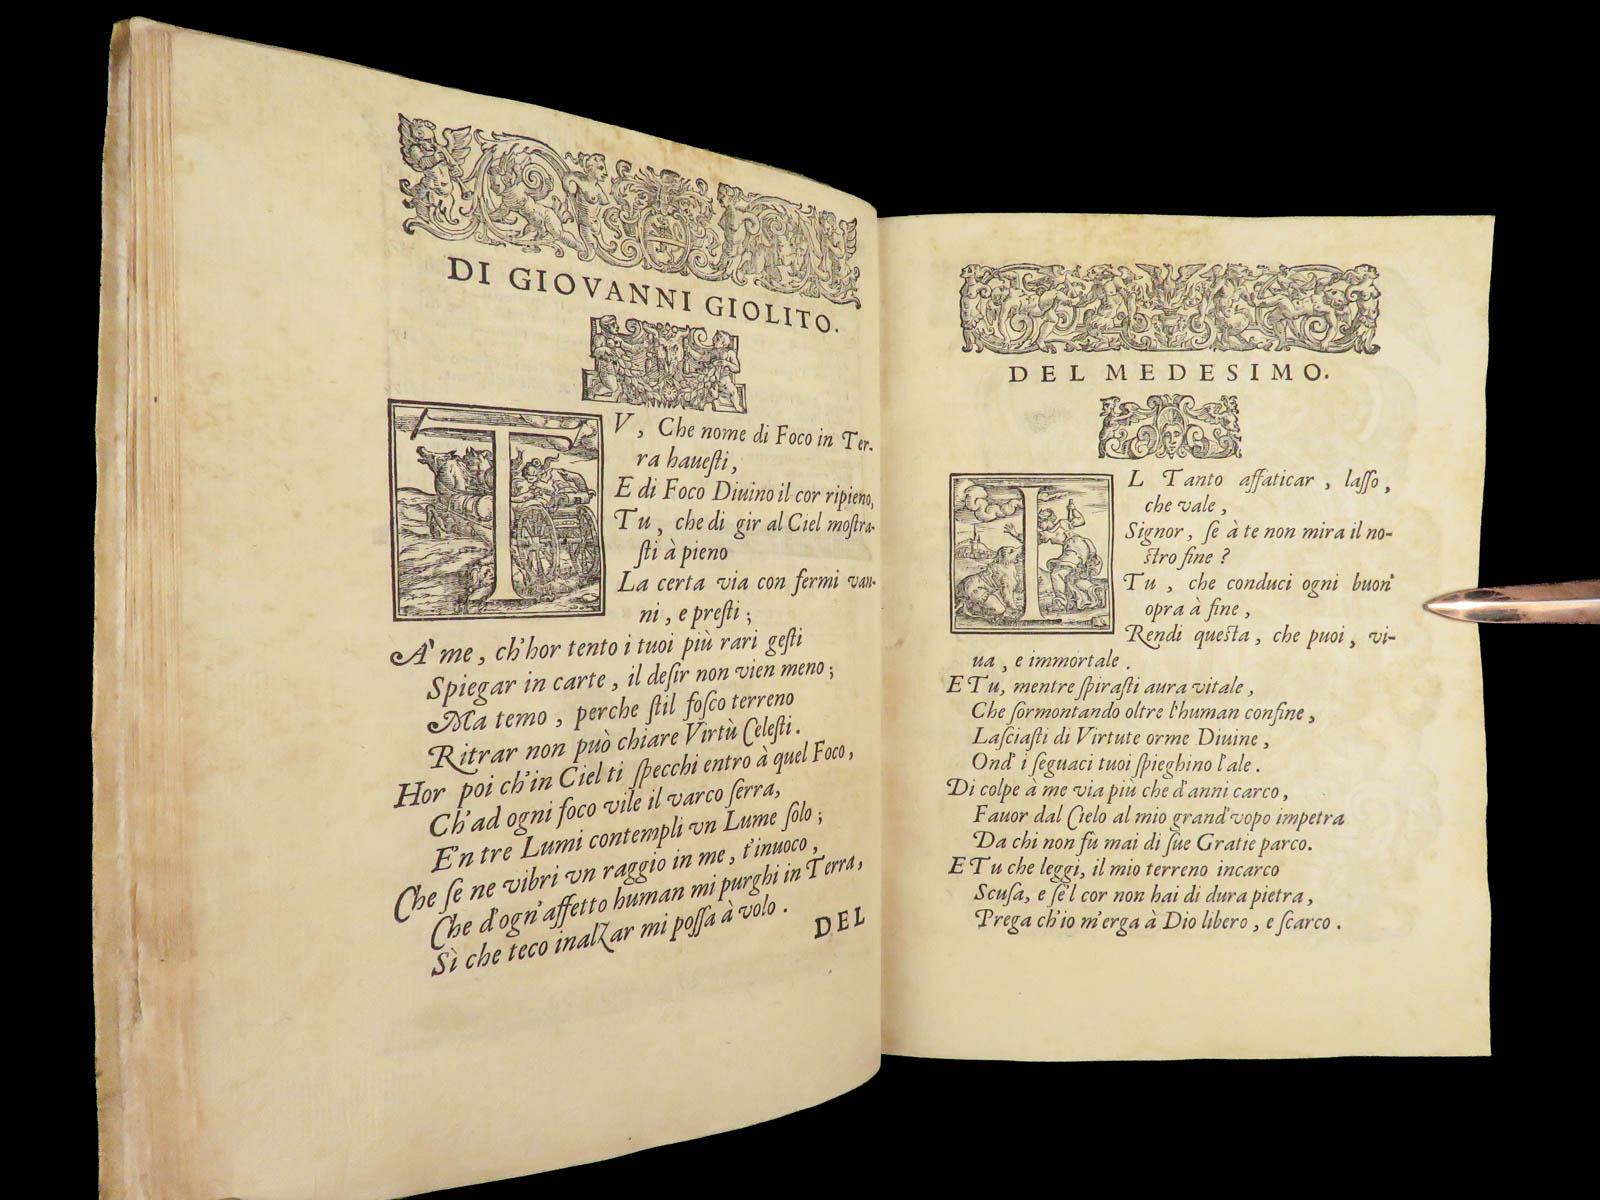 DI GIOVANNI GIOLITO.
TV, Che nome di Foco in Ter-
ra hauesti,
E di Foco Diuino il cor ripieno,
Tu, che di gir al Ciel mostra-
sti à pieno
La certa via con fermi van-
ni, e presti;
A' me, ch'hor tento i tuoi più rari gesti
Spiegar in carte, il desir non vien meno;
Ma temo, perche stil fosco terreno
Ritrar non può chiare Virtù Celesti.
Hor poi ch'in Ciel ti specchi entro à quel Foco,
Ch'ad ogni foco vile il varco serra,
E'ntre Lumi contempli vn Lume solo;
Che se ne vibri vn raggio in me, t'inuoco,
Che d'ogn'affetto human mi purghi in Terra,
Sì che teco inalzar mi possa à volo.
DEL
DEL MEDESIMO.
IL Tanto affaticar, lasso,
che vale,
Signor, se à te non mira il no-
stro fine?
Tu, che conduci ogni buon'
opra à fine,
Rendi questa, che puoi, vi-
ua, e immortale.
E Tu, mentre spirasti aura vitale,
Che sormontando oltre l'human confine,
Lasciasti di Virtute orme Diuine,
Ond' i seguaci tuoi spieghino l'ale.
Di colpe à me via più che d'anni carco,
Fauor dal Cielo al mio grand'vopo impetra
Da chi non fù mai di sue Gratie parco.
E Tu che leggi, il mio terreno incarco
Scusa, e se'l cor non hai di dura pietra,
Prega ch'io m'erga à Dio libero, e scarco.